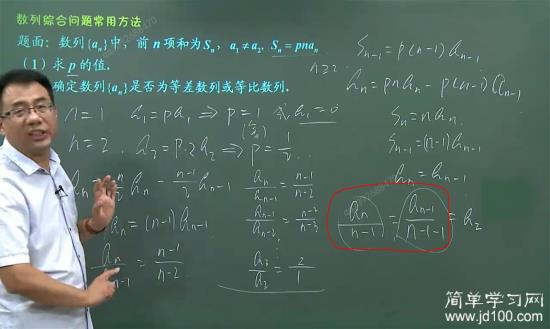 数列综合问题常用方法
题面：数列{aₙ}中，前n项和为Sₙ，a₁≠a₂，Sₙ=pnaₙ
（1）求p的值.
确定数列{aₙ}是否为等差数列或等比数列.
n=1 a₁=pa₁ ⇒ p=1 或a₁=0
n=2 a₂=p·2a₂ ⇒ p=1/2
aₙ₋₁
aₙ=(n-1)aₙ₋₁
= (n-1)/(n-2)
aₙ/aₙ₋₁ = (n-1)/(n-2)
aₙ₋₁/aₙ₋₂ = (n-2)/(n-3)
a₃/a₂ = 2/1
n≥2
Sₙ₋₁=p(n-1)aₙ₋₁
aₙ=pnaₙ-p(n-1)aₙ₋₁
Sₙ=naₙ
Sₙ₋₁=(n-1)aₙ₋₁
aₙ=aₙ₋₁
aₙ/(n-1) = aₙ₋₁/(n-1-1) = a₂
简单学习网
www.jd100.com